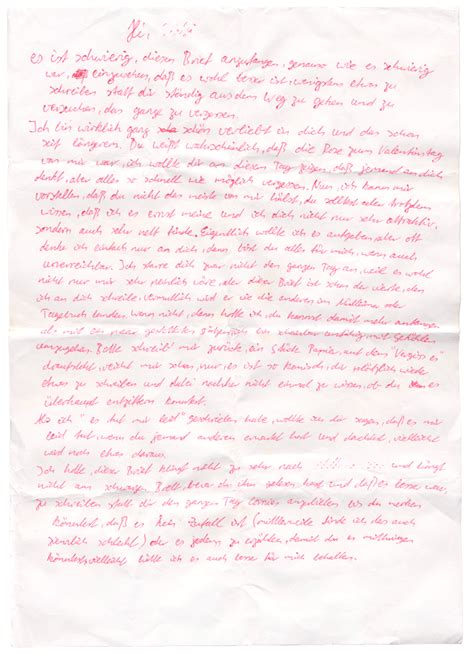 Hi,
es ist schwierig, diesen Brief anzufangen, genauso wie es schwierig
war, einzusehen, daß es wohl besser ist, wenigstens etwas zu
schreiben statt dir ständig aus dem Weg zu gehen und zu
versuchen, das ganze zu vergessen.
Ich bin wirklich ganz schön verliebt in dich und das schon
seit längerem. Du weißt wahrscheinlich, daß die Rose zum Valentinstag
von mir war, ich wollte dir an diesem Tag zeigen, daß jemand an dich
denkt, aber alles so schnell wie möglich vergessen. Nun, ich kann mir
vorstellen, daß du nicht das meiste von mir hältst, du solltest aber trotzdem
wissen, daß ich es ernst meine und ich dich nicht nur sehr attraktiv,
sondern auch sehr nett finde. Eigentlich wollte ich es aufgeben, aber oft
denke ich einfach nur an dich, dann bist du alles für mich, wenn auch
unerreichbar. Ich starre dich zwar nicht den ganzen Tag an, weil es wohl
nicht nur mir sehr peinlich wäre, aber dieser Brief ist schon der vierte, den
ich an dich schreibe. Vermutlich wird er wie die anderen im Mülleimer oder
Tagebuch landen, wenn nicht, dann hoffe ich, du kannst damit mehr anfangen
als mit
umzugehen. Bitte schreib' mir zurück, ein Stück Papier, auf dem "Vergiss es"
draufsteht, reicht mir schon, nur, es ist so komisch, dir plötzlich wieder
etwas zu schreiben und dabei nachher nicht einmal zu wissen, ob du es
überhaupt entziffern konntest.
Als ich "es tut mir leid" geschrieben habe, wollte ich dir sagen, daß es mir
leid tut, wenn du jemand anderen erwartet hast und dachtest, vielleicht
wird noch etwas daraus.
Ich hoffe, dieser Brief klingt nicht zu sehr nach und hängt
nicht am schwarzen Brett, bevor du ihn gelesen hast und daß es besser war,
zu schreiben statt dir den ganzen Tag anzubieten, wo du merken
könntest, daß es kein Zufall ist (mittlerweile finde ich das auch
ziemlich schlecht) oder es jedem zu erzählen, damit du es mitkriegen
könntest, vielleicht hätte ich es auch besser für mich behalten.